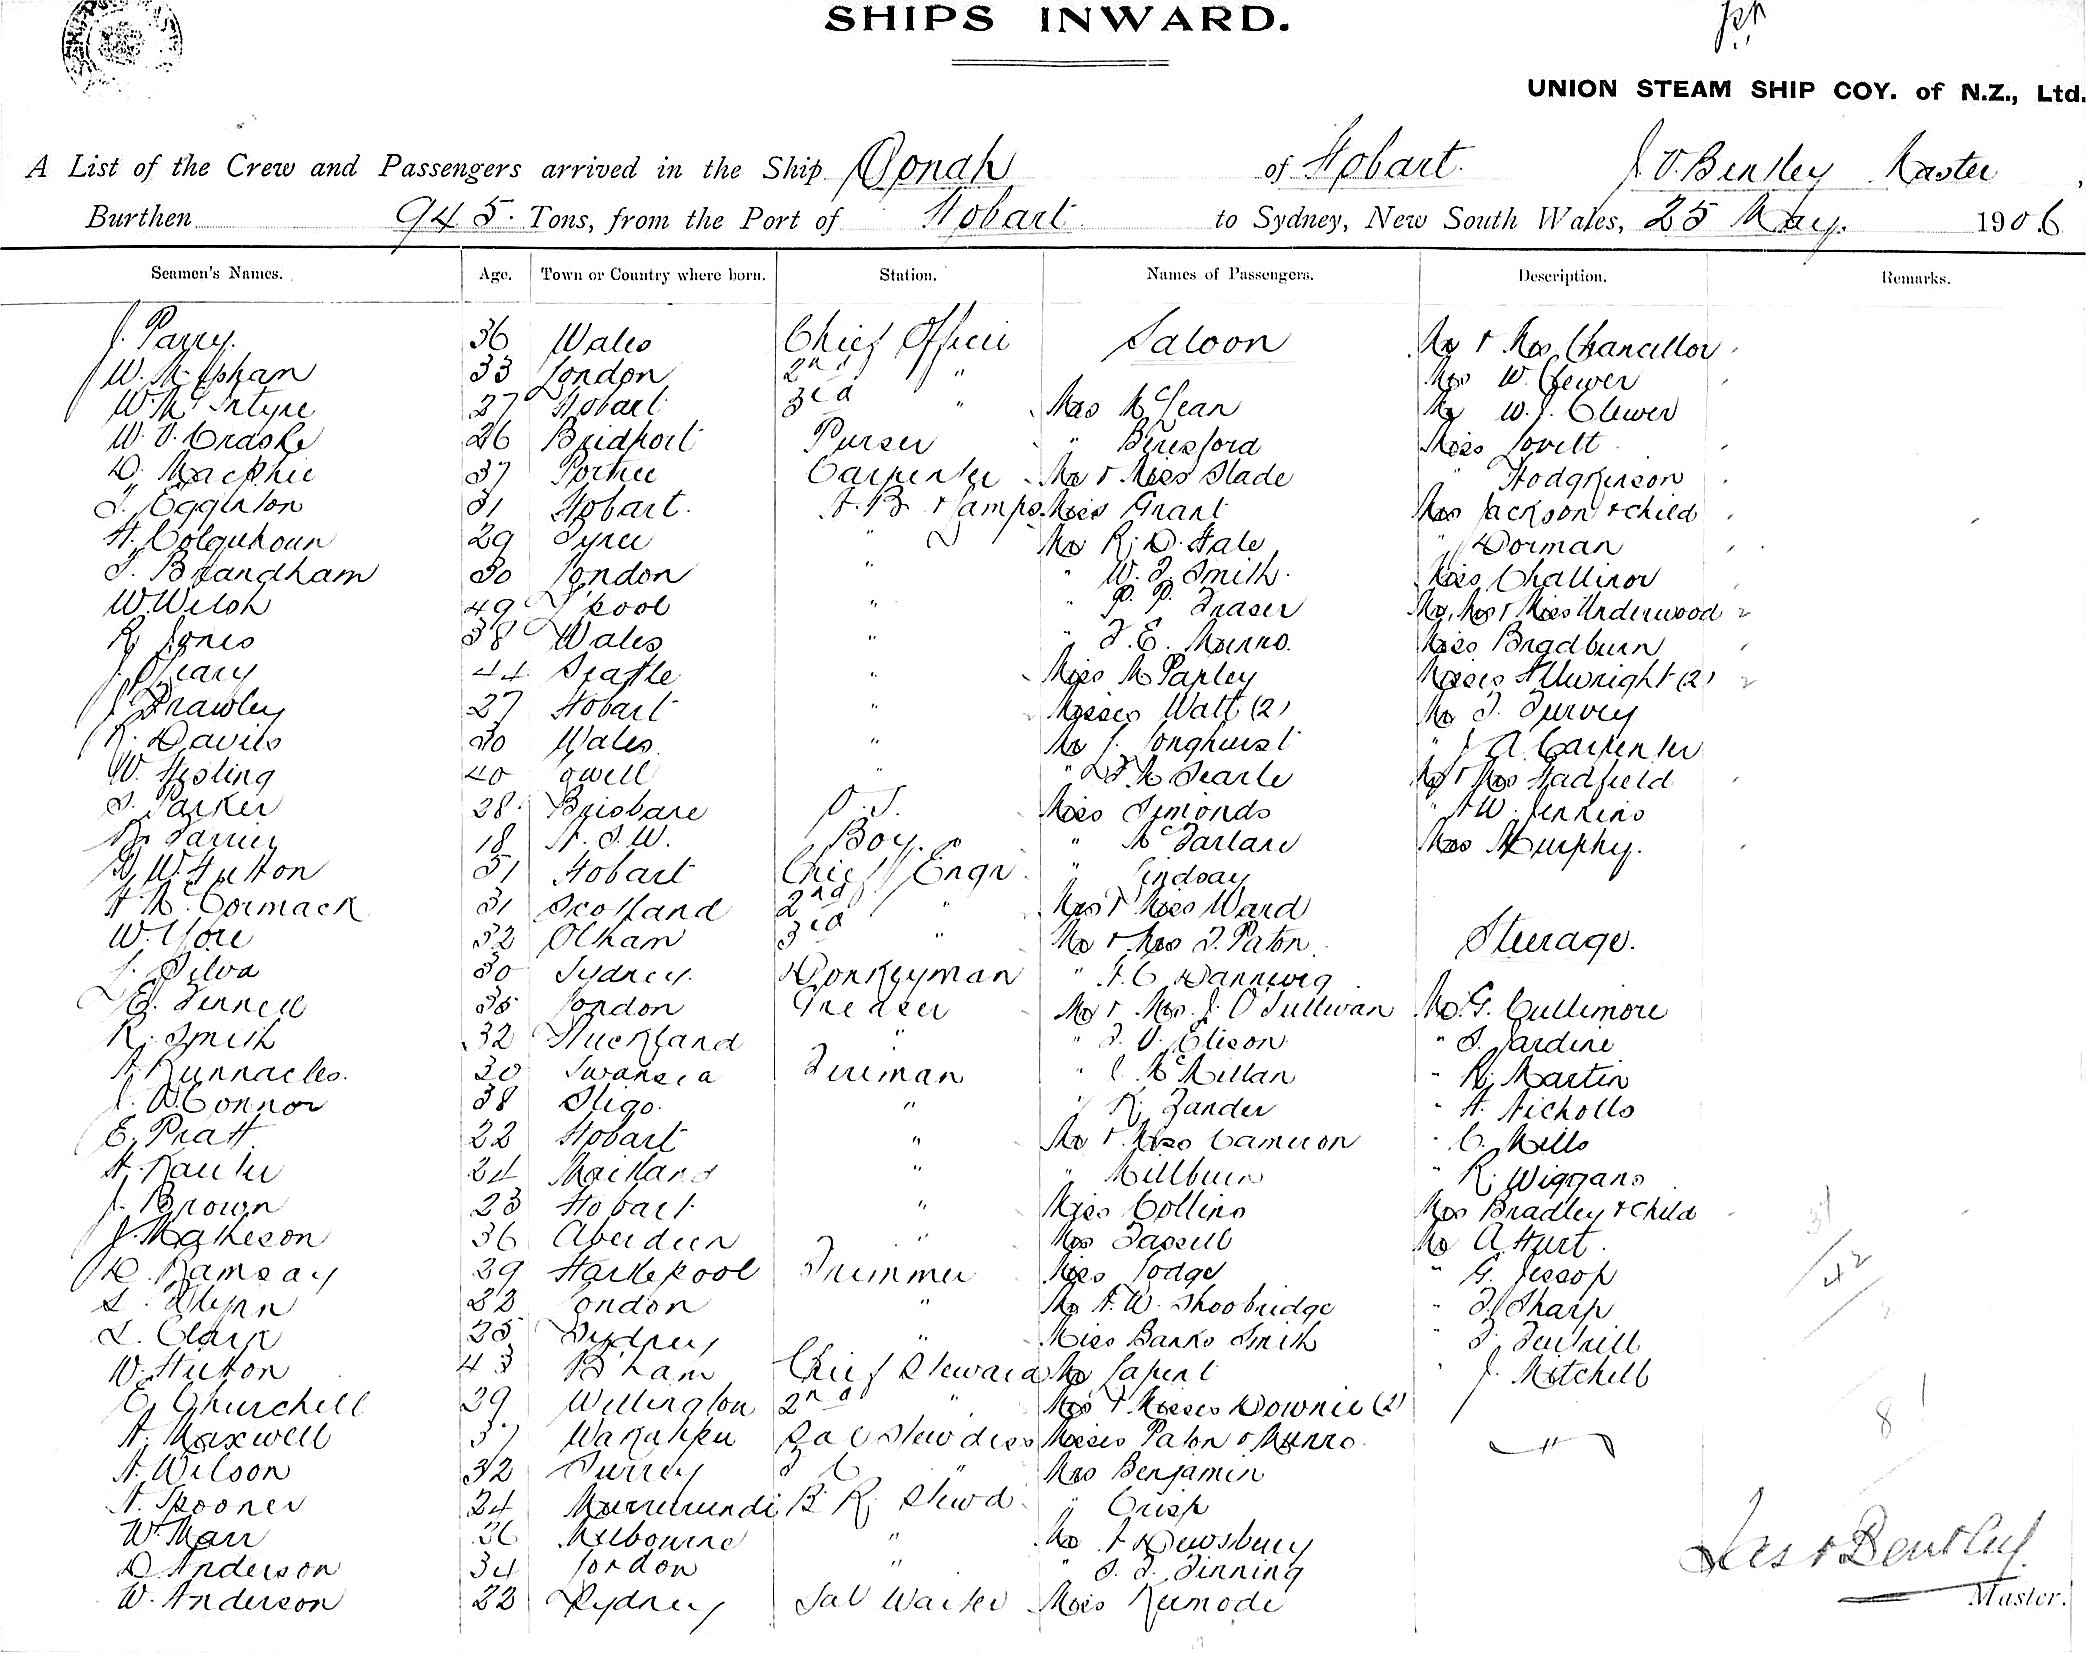 SHIPS INWARD.
UNION STEAM SHIP COY. of N.Z., Ltd.
A List of the Crew and Passengers arrived in the Ship Oonah of Hobart. J V. Bentley Master
Burthen 945. Tons, from the Port of Hobart to Sydney, New South Wales, 25 May. 1906
Seamen's Names. Age. Town or Country where born. Station. Names of Passengers. Description. Remarks.
J. Parry. 36 Wales Chief Officer Saloon Mr & Mrs Chancellor
W. McEphan 33 London 2nd " Mrs W. Clewer
W. McIntyre 27 Hobart 3rd " Mrs McLean Mr W. J. Clewer
W. V. Craske 26 Bridport Purser " Beresford Miss Lovett
D. Macphie 37 Portree Carpenter Mr & Miss Slade " Hodgkinson
S. Egginton 31 Hobart. A. B. & Lamps Miss Grant Mrs Jackson & child
H. Colquhoun 29 Tyree " Mr R. D. Hale " Dorman
T. Brandham 30 London " " W. F. Smith. Miss Challinor
W. Welsh 49 L'pool " " P. P. Fraser Mr, Mrs & Miss Underwood
R. Jones 38 Wales " " F. E. Munro. Miss Bradburn
J. Geary 44 Seattle " Miss M Papley Misses Allwright (2)
J. Frawley 27 Hobart " Misses Watt (2) Mr F. Turvey
R. Davies 30 Wales. " Mr J. Longhurst " J A. Carpenter
W. Hesling 40 " " F M Searle Mr & Mrs Hadfield
S. Parker 28. Brisbane O. S. Miss Simonds " A W. Jenkins
Farrier 18 N. S. W. Boy. " McFarlane Mrs Murphy.
D. W. Hutton 51 Hobart Chief Engr. " Lindsay
A. McCormack 31 Scotland 2nd " Mrs & Miss Ward
W. Yore 32 Olham 3rd " Mr & Mrs F. Paton Steerage.
J. Silva 30 Sydney. Donkeyman " Dannevig
E. Fennell 35 London Greaser Mr & Mrs. J. O'Sullivan Mr G. Cullimore
R. Smith 32 Auckland " " F. V. Elison " S. Jardine
A. Runnacles. 30 Swansea Fireman " C McMillan " R. Martin
J. O'Connor 38 Sligo. " " R. Zander " A. Nicholls
E. Pratt 22 Hobart " Mr & Miss Cameron " C. Mills
24 Maitland " " Millburn " R. Wiggans
J. Brown 23 Hobart. " Miss Collins Mrs Bradley & child
J. Matheson 36 Aberdeen " Mrs Fassell Mr A Hurt.
D. Ramsay 29 Hartlepool Trimmer Miss Lodge " G. Jessop
L. Flynn 22 London " Mr A. W. Shoobridge " F. Sharp
L. Clark 25 Sydney " Miss Banks Smith
W. Hutton 43 B'ham Chief Steward Mr Lapent " J. Mitchell
E. Churchill 39 Wellington 2nd " Mrs & Misses Downie (2)
A. Maxwell 37 Sal Stewdess Misses Paton & Munro.
A. Wilson 32 Surrey " Mrs Benjamin
A. Spooner 24 Murrurundi B. R. Stewd. " Crisp
W. Marr 36 Melbourne " Mr A Dewsbury
D Anderson 34 London " " S. F. Finning
W. Anderson 22 Sydney Sal Waiter Miss Kermode
Master.